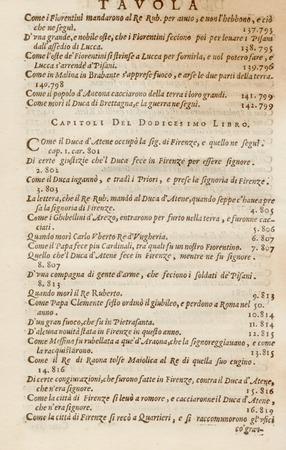 TAVOLA
Come i Fiorentini mandarono al Re Rub. per aiuto, e non l'hebbono, e ciò
che ne seguì. 137.795
D'vna grande, e nobile oste, che i Fiorentini feciono poi per leuare i Pisani
dall'assedio di Lucca. 138.795
Come l'oste de' Fiorentini si strinse a Lucca per fornirla, e nol potero fare, e
Lucca s'arrendè a' Pisani. 139.796
Come in Malina in Brabante s'apprese fuoco, e arse le due parti della terra.
140.798
Come il popolo d'Ancona cacciarono della terra i lor grandi. 141.799
Come morì il Duca di Brettagna, e la guerra ne seguì. 142.799
CAPITOLI DEL DODICESIMO LIBRO.
Come il Duca d'Atene occupò la sig. di Firenze, e quello ne seguì.
cap. 1. car. 801
Di certe giustizie che'l Duca fece in Firenze per essere signore.
2. 802
Come il Duca ingannò, e tradì i Priori, e prese la signoria di Firenze.
3. 803
La lettera, che il Re Rub. mandò al Duca d'Atene, quando seppe c'hauea pre
sa la signoria di Firenze. 4. 805
Come i Ghibellini d'Arezo, entrarono per furto nella terra, e furonne cac-
ciati. 5. 806
Quando morì Carlo Vberto Re d'Vngheria. 6. 807
Come il Papa fece piu Cardinali, tra quali fu un nostro Fiorentino. 7. 807
Quello che'l Duca d'Atene fece in Firenze, mentre ne fu signore.
8. 807
D'vna compagna di gente d'arme, che feciono i soldati de' Pisani.
8. 813
Quando morì il Re Ruberto. 9. 813
Come Papa Clemente sesto ordinò il giubileo, e perdono a Roma nel 50.
anno. 10.814
D'un gran fuoco, che fu in Pietrasanta. 11.814
D'alcuna nouità stata in Firenze in questo anno. 12.815
Come Messina fu rubellata a que' d'Araona, che la signoreggiauano, e come
la racquistarono. 13.815
Come il Re di Raona tolse Maiolica al Re di quella suo cugino.
14.816
Di certe congiurazioni, che furono fatte in Firenze, contra il Duca d'Atene,
che n'era signore. 15.816
Come la città di Firenze si leuò a romore, e cacciaronne il Duca d'Atene,
che n'era signore. 16.819
Come la città di Firenze si recò a Quartieri, e si raccomunorono gl'vfici
co gran-